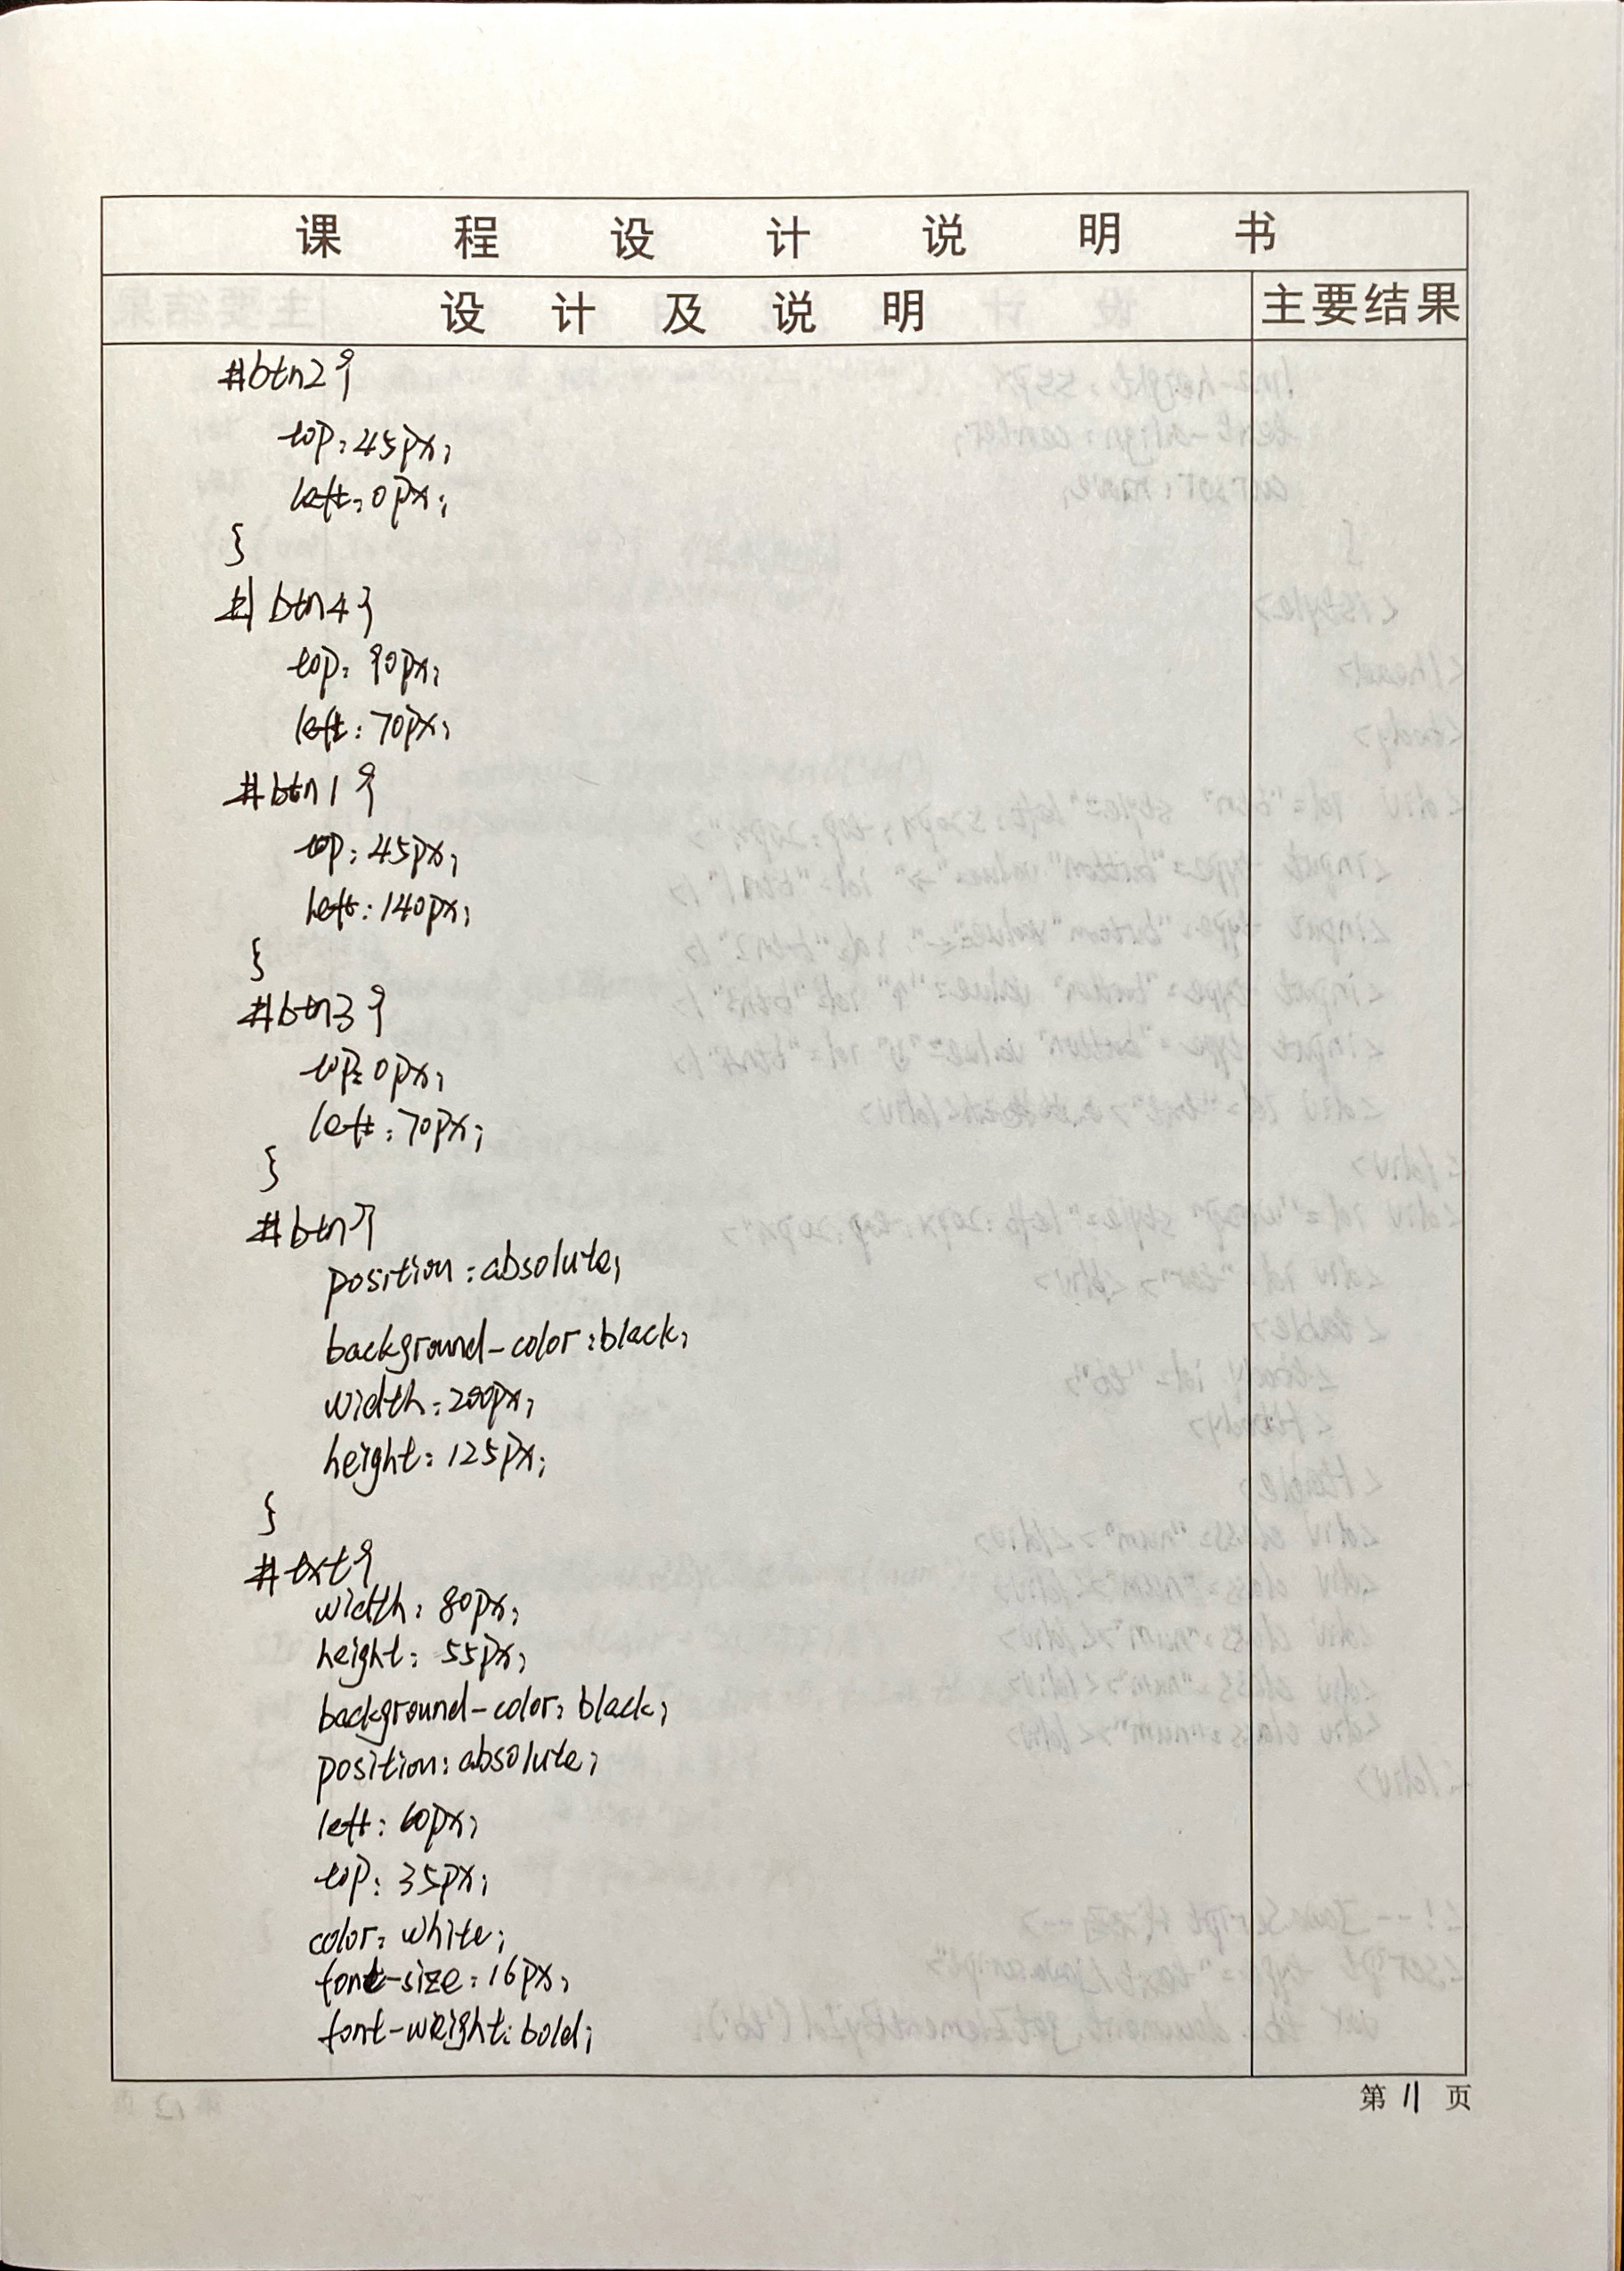 课程设计说明书
设计及说明 主要结果
#btn2{
top:45px;
left:0px;
}
#btn4{
top:90px;
left:70px;
#btn1{
top:45px;
left:140px;
}
#btn3{
top:0px;
left:70px;
}
#btn{
position:absolute;
background-color:black;
width:200px;
height:125px;
}
#txt{
width:80px;
height:55px;
background-color:black;
position:absolute;
left:60px;
top:35px;
color:white;
font-size:16px;
font-weight:bold;
第 11 页